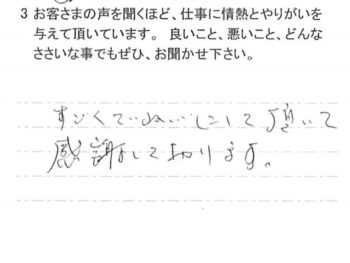 3 お客さまの声を聞くほど、仕事に情熱とやりがいを
与えて頂いています。 良いこと、悪いこと、どんな
ささいな事でもぜひ、お聞かせ下さい。
すごくていねいにして頂いて
感謝しております。